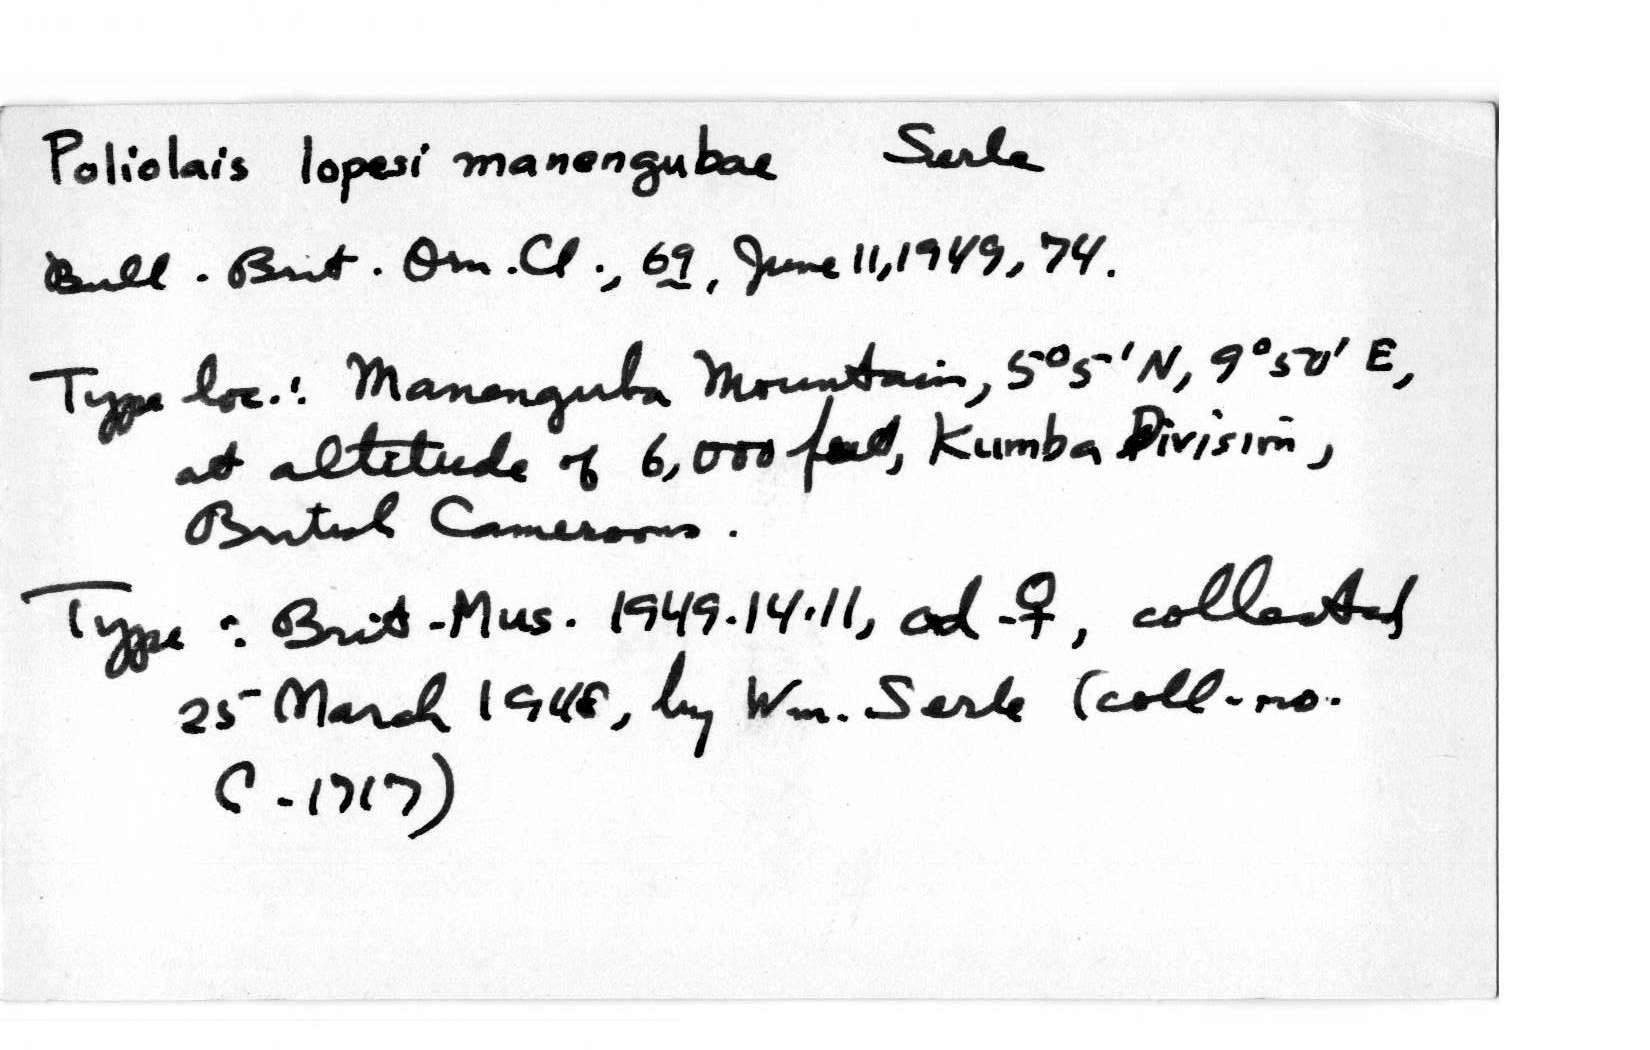 Poliolais lopesi manengubae Serle
Bull. Brit. Orn. Cl., 69, June 11, 1949, 74.
Type loc.: Manenguba Mountain, 5°5' N, 9°50' E,
at altitude of 6,000 feet, Kumba Division,
British Cameroons.
Type: Brit. Mus. 1949.14.11, ad. ♀, collected
25 March 1948, by Wm. Serle (coll. no.
C-1717)